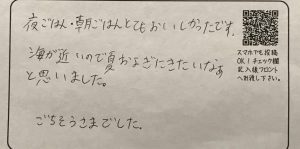 夜ごはん・朝ごはんとてもおいしかったです。
海が近いので夏およぎにきたいなぁ
と思いました。
ごちそうさまでした。
スマホでも投稿
OK！チェック欄
記入後フロント
へお渡し下さい。